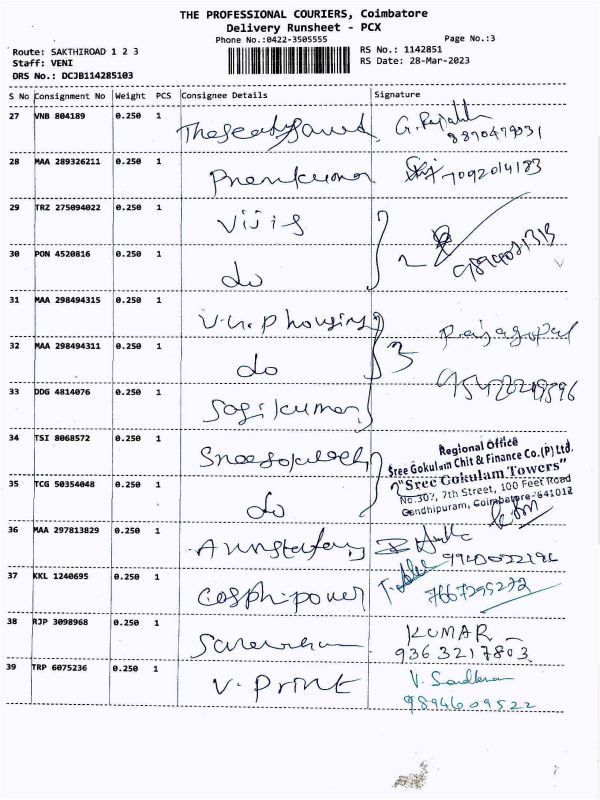 THE PROFESSIONAL COURIERS, Coimbatore
Delivery Runsheet - PCX
Phone No.:0422-3505555
Page No.:3
Route: SAKTHIROAD 1 2 3
RS No.: 1142851
Staff: VENI
RS Date: 28-Mar-2023
DRS No.: DCJB114285103
S No Consignment No Weight PCS Consignee Details Signature
27 VNB 804189 0.250 1
28 MAA 289326211 0.250 1 Premkumar 7092014183
29 TRZ 275094022 0.250 1 Vijis
30 PON 4520816 0.250 1 do 2
31 MAA 298494315 0.250 1 V.G.P housing Rajagopal
32 MAA 298494311 0.250 1 do 3
33 DDG 4814076 0.250 1 Sasikumar
34 TSI 8068572 0.250 1
Regional Office
Sree Gokulam Chit & Finance Co.(P) Ltd.
"Sree Gokulam Towers"
35 TCG 50354048 0.250 1 do
No.307, 7th Street, 100 Feet Road
Gandhipuram, Coimbatore-641012
36 MAA 297813829 0.250 1
37 KKL 1240695 0.250 1 7667295272
38 RJP 3098968 0.250 1 KUMAR
9363217803
39 TRP 6075236 0.250 1 V. Print
9894609522